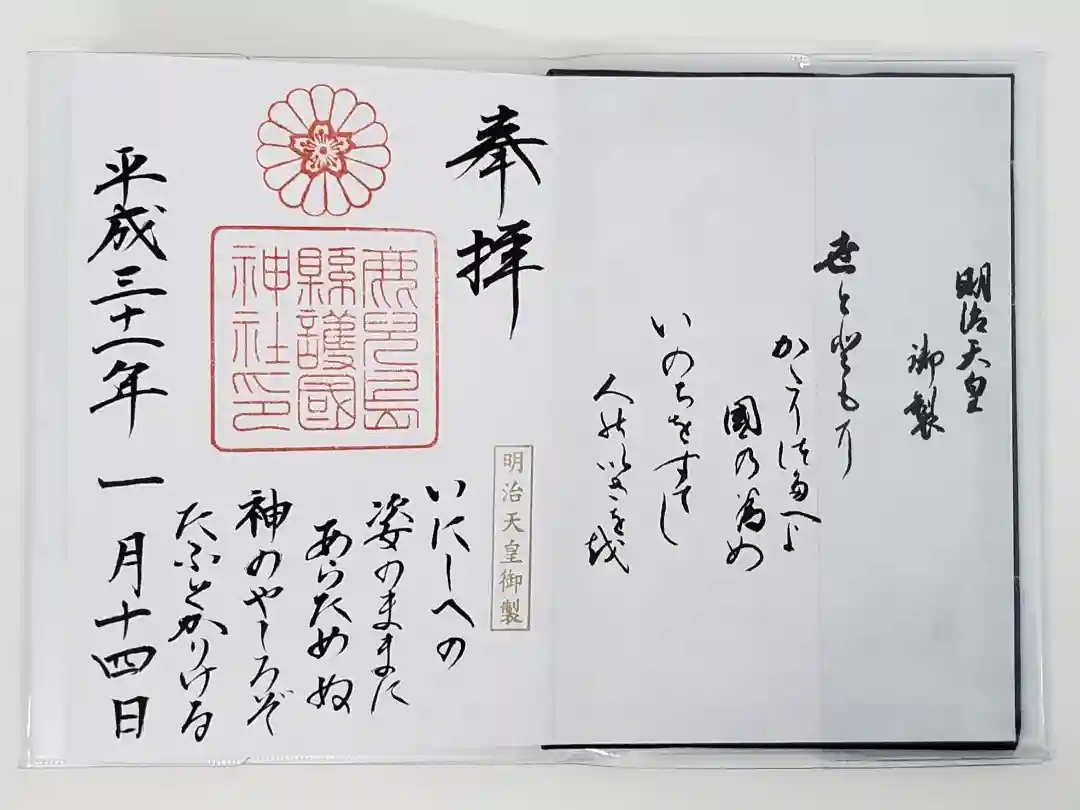 明治天皇
御製
世ととも尓
かたりつたへよ
國乃為め
いのちをすてし
人能いさを越
奉拝
鹿児島
縣護國
神社印
明治天皇御製
いにしへの
姿のままに
あらためぬ
神のやしろぞ
たふとかりける
平成三十一年 一月十四日